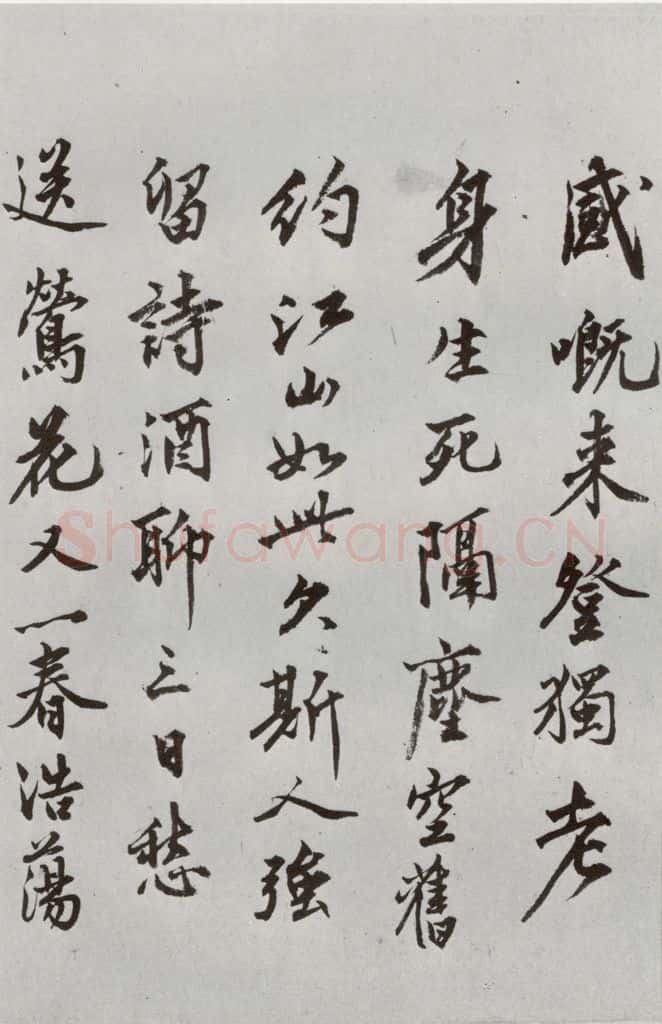 感嘅来登獨老
身生死隔塵空舊
約江山如此久斯人強
留詩酒聊三日愁
送鶯花又一春浩蕩
Shufawang.CN